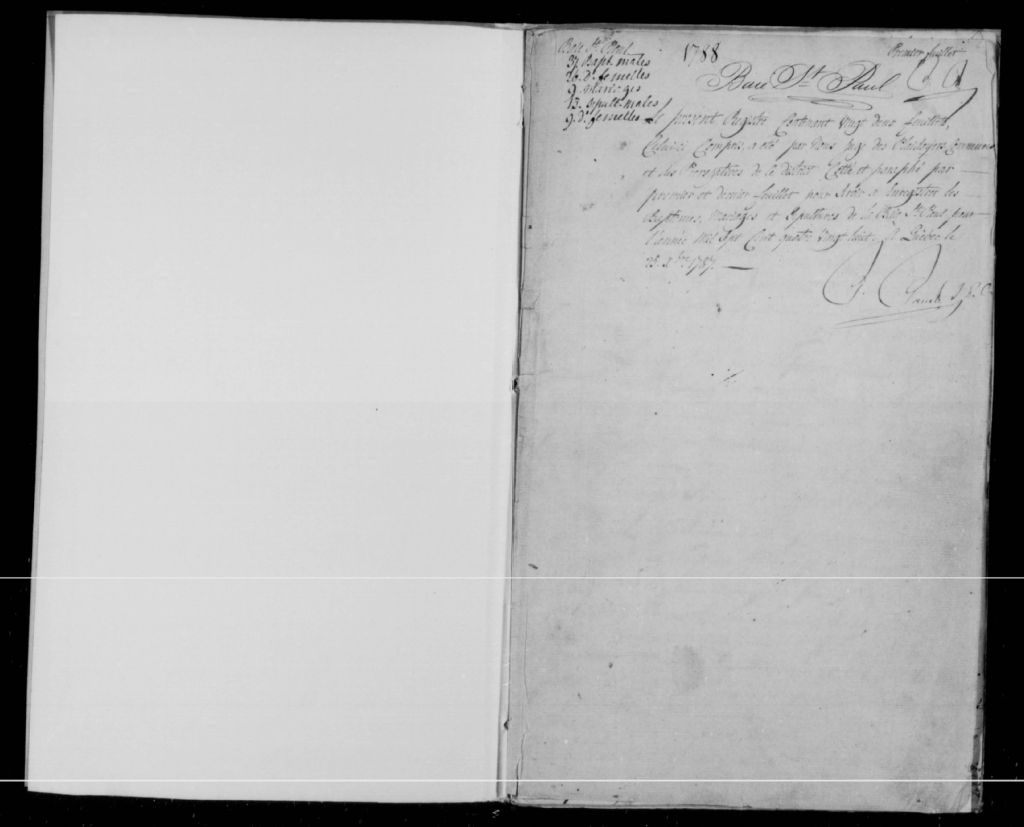 Baie St Paul
37. Bapt. males
26. Do. femelles
9. Mariages
13. sepult. males
9. Do. femelles
1788
Premier feuillet
Baie St. Paul
Le present Registre Contenant Vingt deux feuillets,
Celuici Compris, a eté par Nous Juge des Plaidoyers Communs
et des Prerogatives de le district Cotté et paraphé par
premier et dernier feuillet pour servir a Enregistrer les
Baptêmes, Mariages et Sepultures de la Baie St. Paul pour
l'année Mil Sept Cent quatre Vingt huit. A Quebec le
25. 1787.
Panet